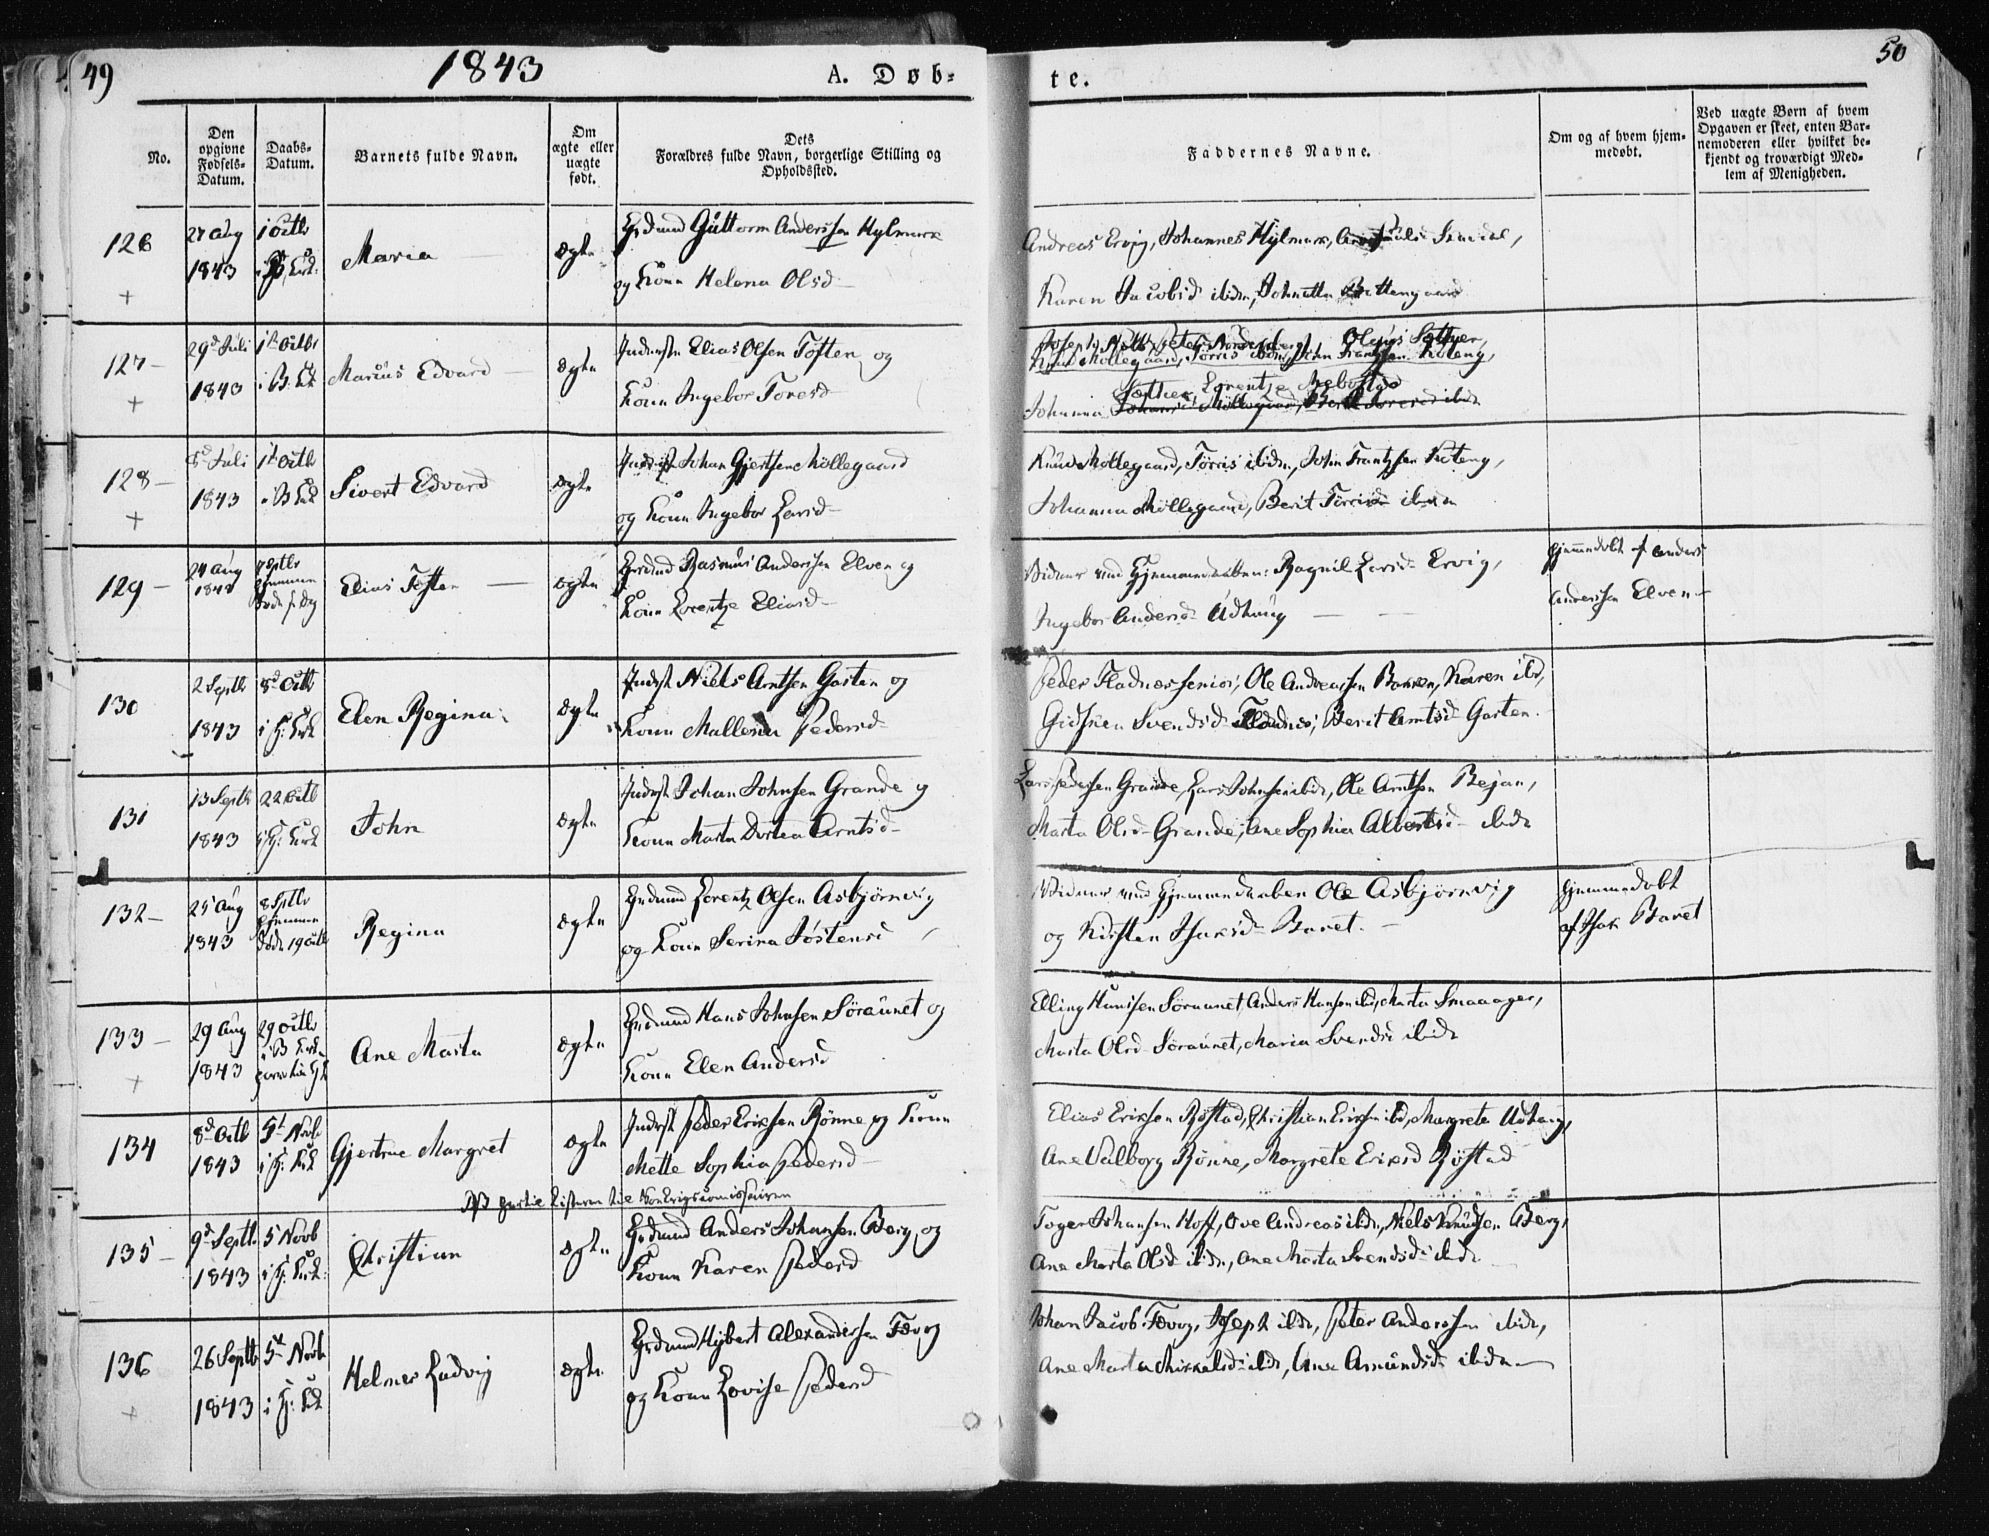 49
1843
A. Døb-
te.
50
No.
Den opgivne Fødsels-Datum.
Daabs-Datum.
Barnets fulde Navn.
Om ægte eller uægte født.
Dets Forældres fulde Navn, borgerlige Stilling og Opholdssted.
Faddernes Navne.
Om og af hvem hjem-medøbt.
Ved uægte Børn af hvem Opgaven er skeet, enten Bar-nemoderen eller hvilket be-kjendt og troværdigt Med-lem af Menigheden.
126
27 Aug
1843
1 Octbr
Maria
ægte
Grdmnd Guttorm Anderssen Hylmark
og Konn Helena Olsd
Andreas Ervig, Johannes Hylmark,
Karen Jacobsd ibidm,
127
29d Juli
1843
1te Octbr
i B. Kirk
Marius Edvard
ægte
Inderste Elias Olsen Toften og
Konn Ingebor Toresd
Johanna
128
8d Juli
1843
1te Octbr
i B. Kirk
Sivert Edvard
ægte
Inderst Johan Gjertsen Møllegaard
og Konn Ingebor Larsd
Knud Møllegaard, Tørris ibidm, John Frantzsen Koteng,
Johanna Møllegaard, Berit Tørrisd ibidm
129
24 Aug
Elias Toften
ægte
Grdmnd Rasmus Anderssen Elven og
Konn Lorentze Eliasd
Vidner ved Hjemmedaaben: Ragnil Larsd Ervig,
Ingebor Andersd Udhaug
Hjemmedøbt af Anders
Anderssen Elven
130
2 Septbr
1843
8d Octbr
Elen Regina
ægte
Inderst Niels Arntsen Garten og
Konn Mallena Pedersd
Peder Fladnes senior, Ole Andreassen Barren, Karen ibd,
Gidsken Svendsd Fladnes, Berit Arntsd Garten
131
13 Septbr
1843
22 Octb
John
ægte
Inderst Johan Johnsen Grande og
Konn Marta Dortea Arntsd
Lars Pedersen Grande, Lars Johnsen ibdm, Ole Arntsen Bejan,
Marta Olsd Grande, Ane Sophia Albertsd ibidm
132
25 Aug
1843
8 Septbr
Regina
ægte
Grdmnd Lorentz Olsen Asbjørnvig
og Konn Serina Jøstensd
Vidner ved Hjemmedaaben Ole Asbjørnvig
og Kirsten Isaksd Baret.
Hjemmedøbt
af Isak Baret
133
29 Aug
1843
29 Octbr
Ane Marta
ægte
Grdmnd Hans Johnsen Søraunet og
Konn Elen Andersd
Elling Hansen Søraunet, Anders Hansen ibd, Marta Smaaager,
Marta Olsd Søraunet, Maria Svendsd ibidm
134
8d Octb
1843
5te Novb
Gjertrue Margret
ægte
Inderst Peder Eriksen Rønne og Konn
Mette Sophia Pedersd
Elias Eriksen Røstad, Christian Eriksen ibid, Margrete Udhaug,
Ane Valborg Rønne, Margrete Eriksd Røstad
135
9d Septbr
1843
5 Novb
Christian
ægte
Grdmnd Anders Johansen Berg, og
Konn Karen Pedersd
Toger Johansen Hoff, Ove Andreas ibdm, Niels Knudsen Berg,
Ane Marta Olsd ibidm, Ane Marta Svendsd ibidm
136
26 Septbr
1843
5te Novb
Helmer Ludvig
ægte
Grdmnd Hybert Alexandersen Fævog
og Konn Lovise Pedersd
Johan Jacob Fævog, Joseph ibidm, Peter Anderssen ibidm,
Ane Marta Mikkelsd ibidm, Ane Amundsd ibidm